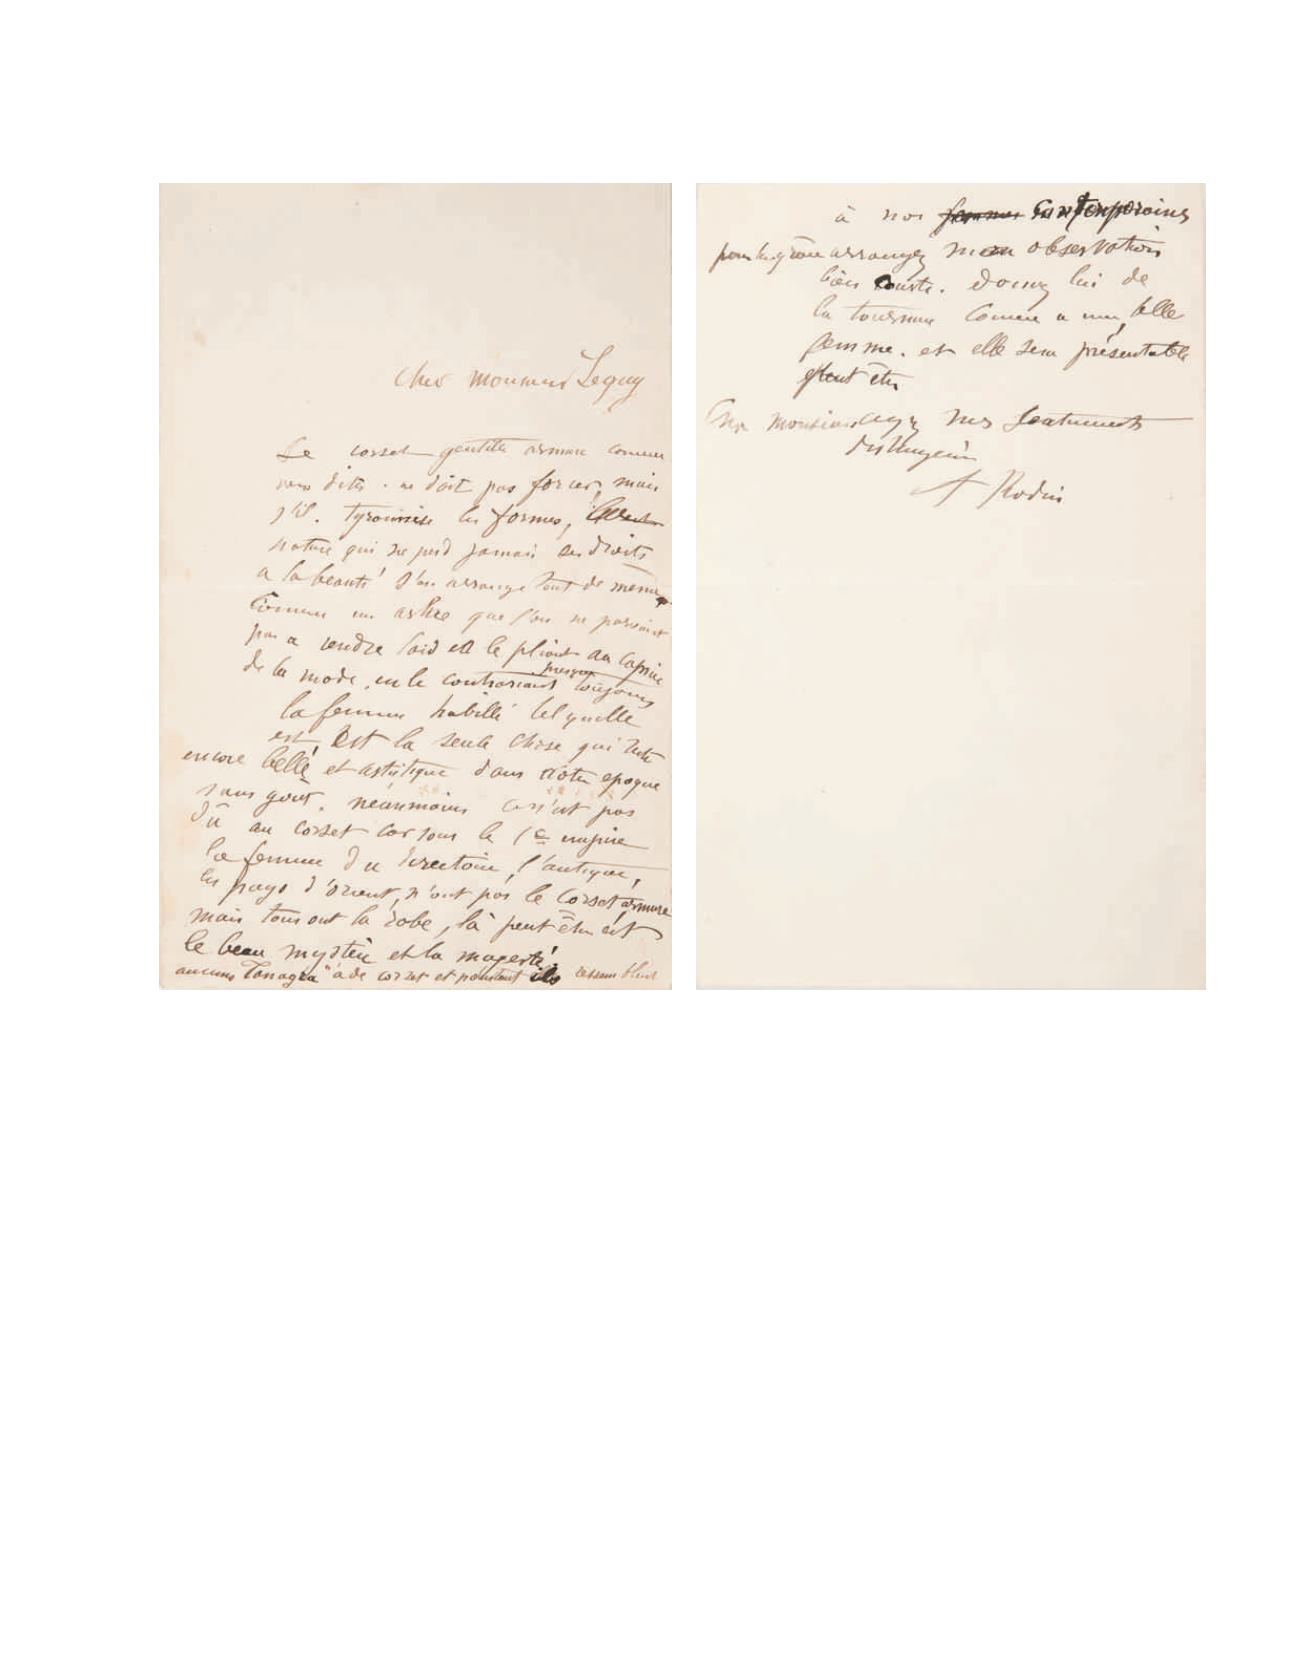 cher monsieur Leguy
Le corset gentille armure comme
vous dites. ne doit pas forcer, mais
s'il. tyrannise les formes,
nature qui ne perd jamais ses droits
a la beauté s'en arrange tout de même
Comme un arbre que l'on ne parvient
pas a rendre laid en le pliant au caprice
de la mode, en le contrariant presque toujours
la femme habillé tel quelle
est, est la seule chose qui reste
encore belle et artistique dans notre epoque
sans goût. néanmoins ce n'est pas
dû au corset car sous le 1e empire
la femme du directoire, l'antique,
les pays d'orient, n'ont pas le corset armure
mais tous ont la robe, là peut être est
le beau mystère et la magesté.
aucunes "Tanagra" a de corset et pourtant ils ressemblent
à nos femmes contemporaines
arrangez mon observation
bien courte. donnez lui de
la tournure comme a une belle
femme. et elle sera présentable
peut être
Cher monsieur ayez mes sentiments
distingués
A Rodin